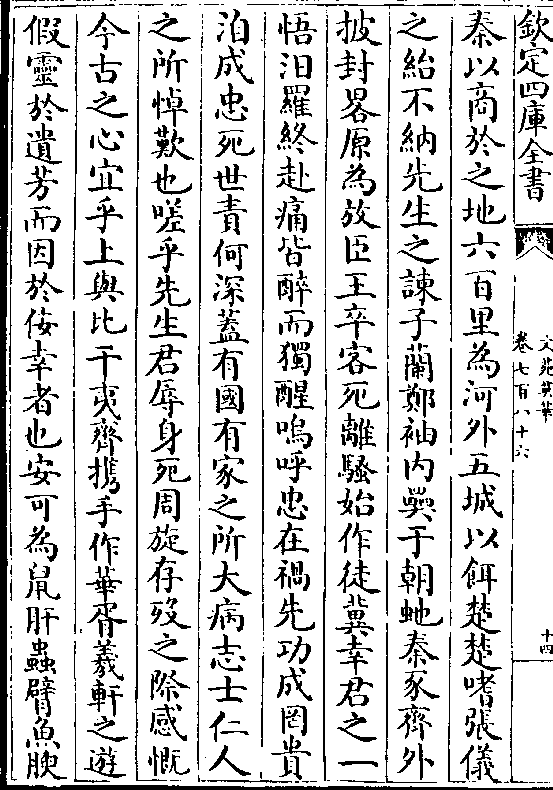 欽定四庫全書
文苑英華
卷七百八十六
十四
秦以商於之地六百里為河外五城以餌楚楚嗜張儀
之紿不納先生之諫子蘭鄭袖内㸑于朝虵秦豕齊外
披封畧原為放臣王卒客死離騷始作徒冀幸君之一
悟汨羅終赴痛皆醉而獨醒嗚呼忠在禍先功成罔貴
洎成忠死世責何深蓋有國有家之所大病志士仁人
之所悼歎也嗟乎先生君辱身死周旋存歿之際感慨
今古之心宜乎上與比干夷齊攜手作華胥羲軒之遊
假靈於遺芳而因於佞幸者也安可為鼠肝蟲臂魚腴